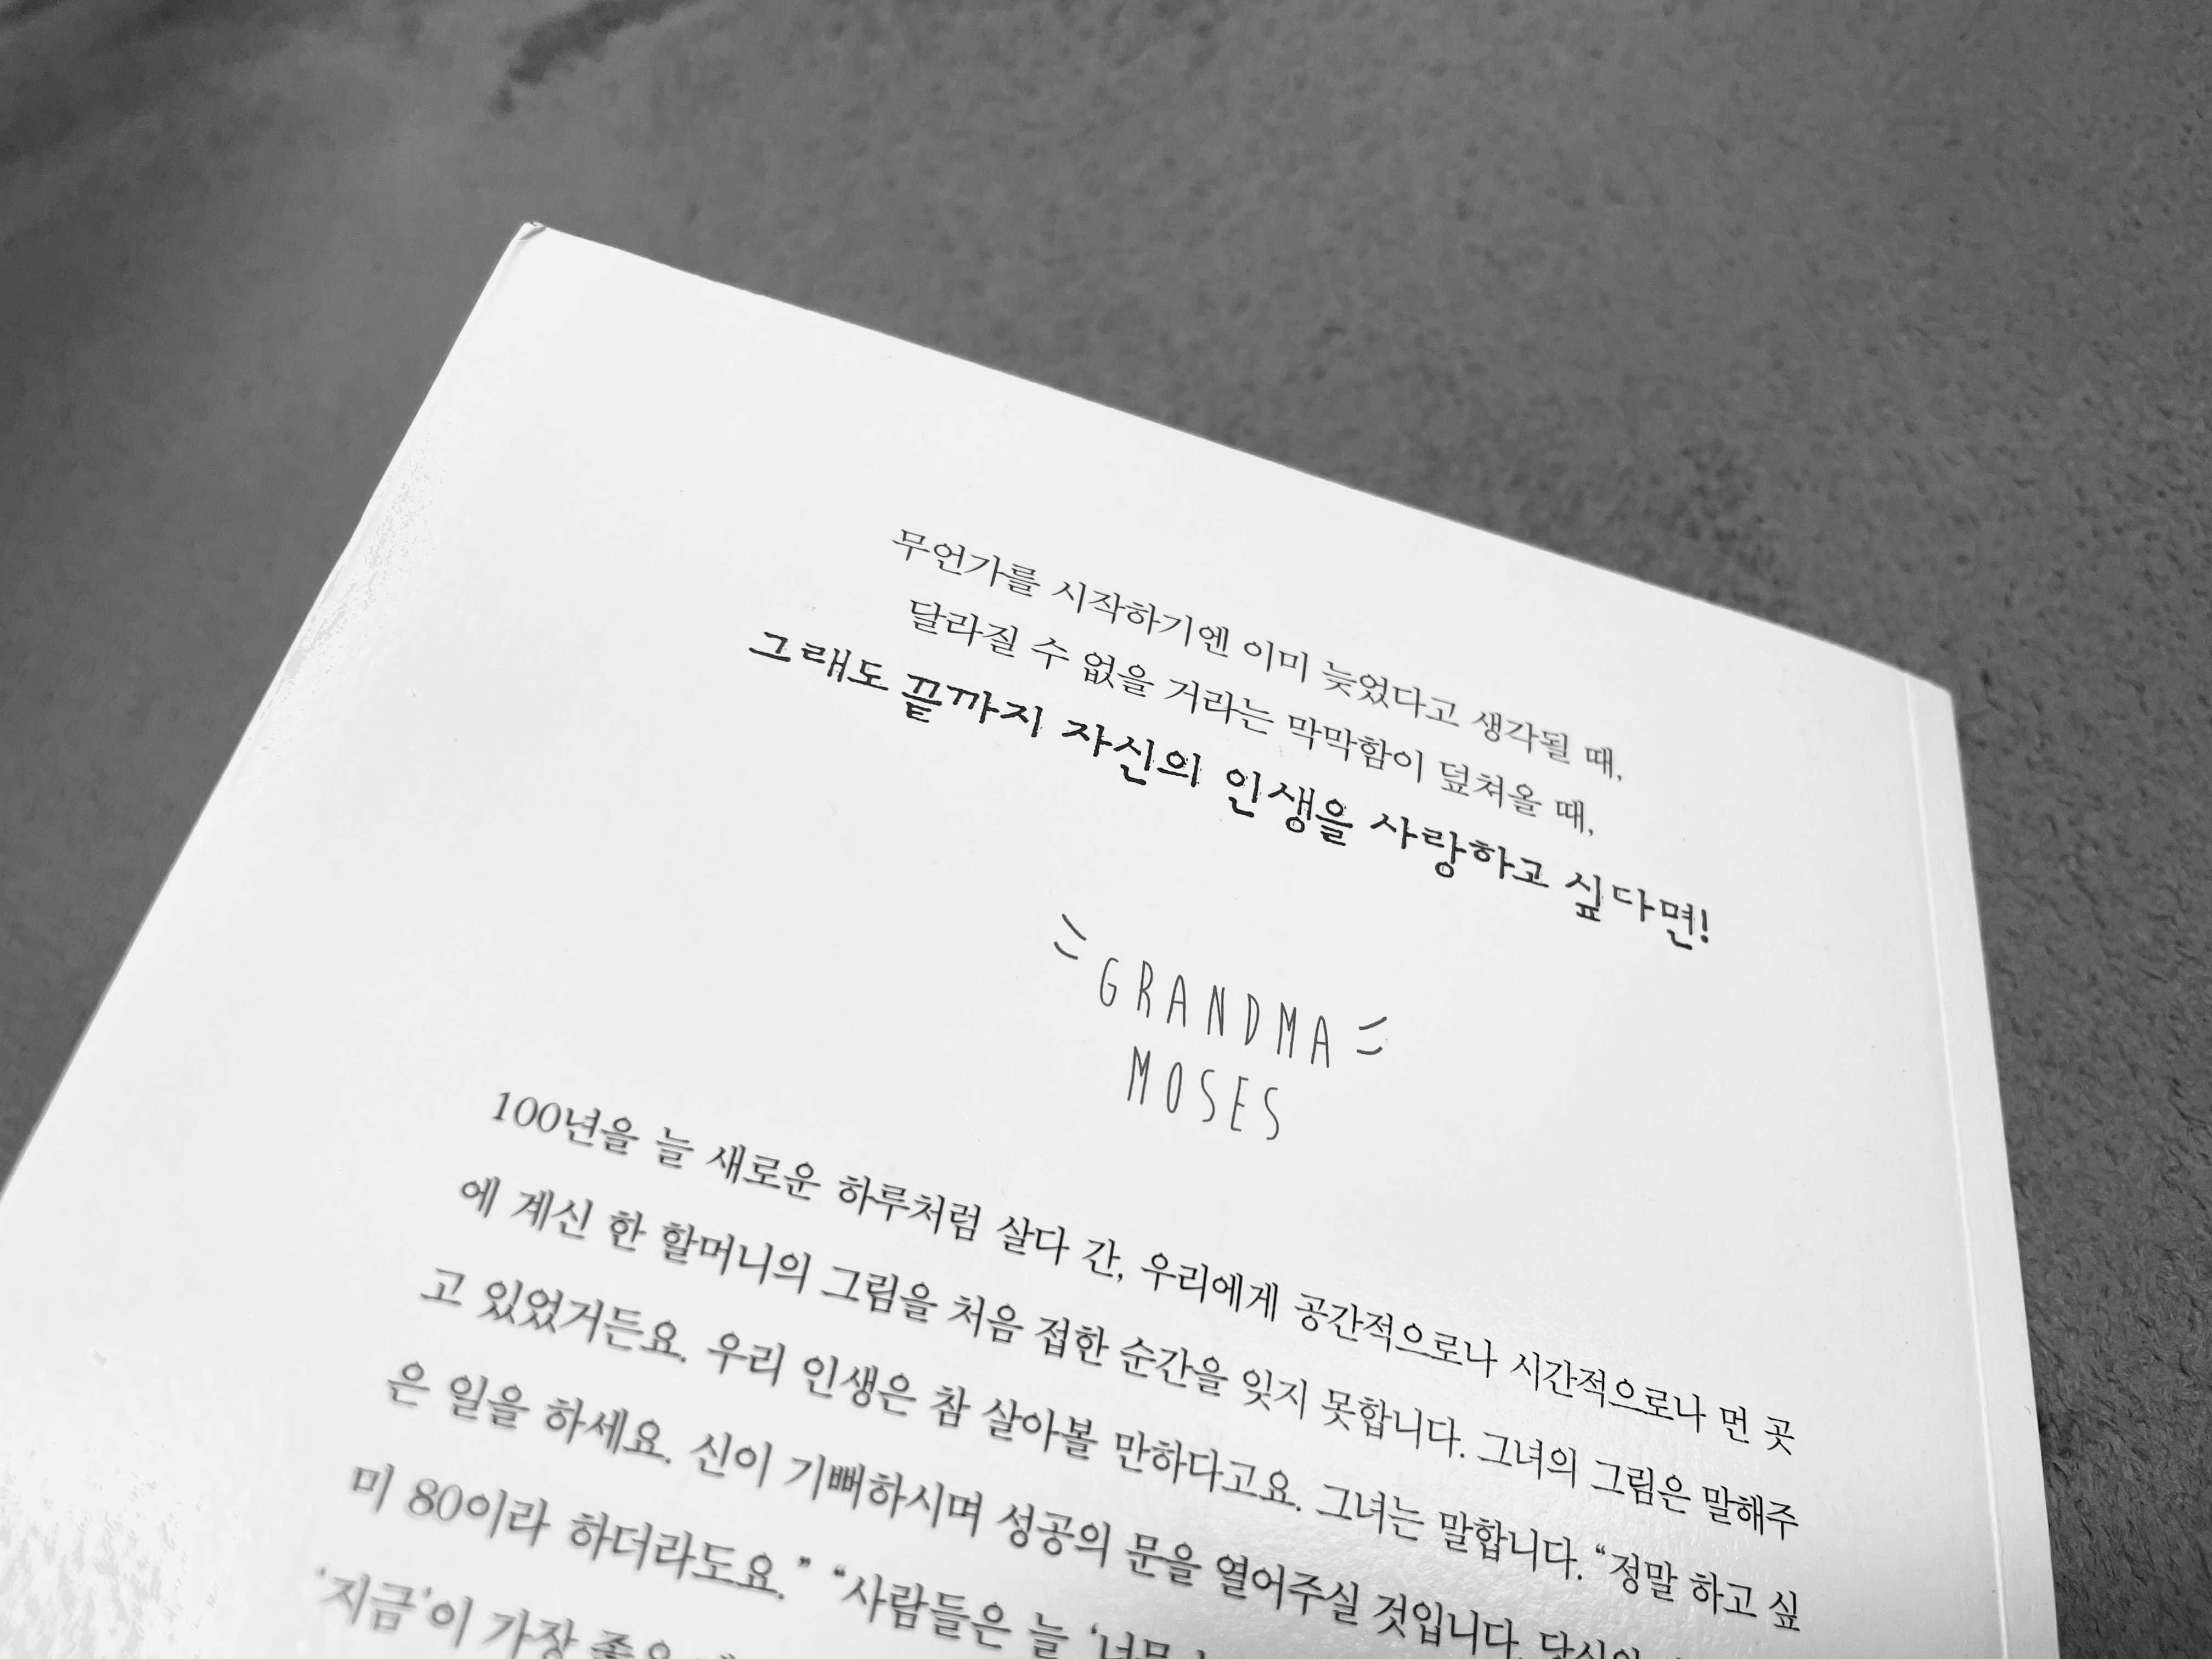 무언가를 시작하기엔 이미 늦었다고 생각될 때,
달라질 수 없을 거라는 막막함이 덮쳐올 때,
그래도 끝까지 자신의 인생을 사랑하고 싶다면!
GRANDMA
MOSES
100년을 늘 새로운 하루처럼 살다 간, 우리에게 공간적으로나 시간적으로나 먼 곳
에 계신 한 할머니의 그림을 처음 접한 순간을 잊지 못합니다. 그녀의 그림은 말해주
고 있었거든요. 우리 인생은 참 살아볼 만하다고요. 그녀는 말합니다. “정말 하고 싶
은 일을 하세요. 신이 기뻐하시며 성공의 문을 열어주실 것입니다.
미 80이라 하더라도요.” “사람들은 늘
‘지금’이 가장